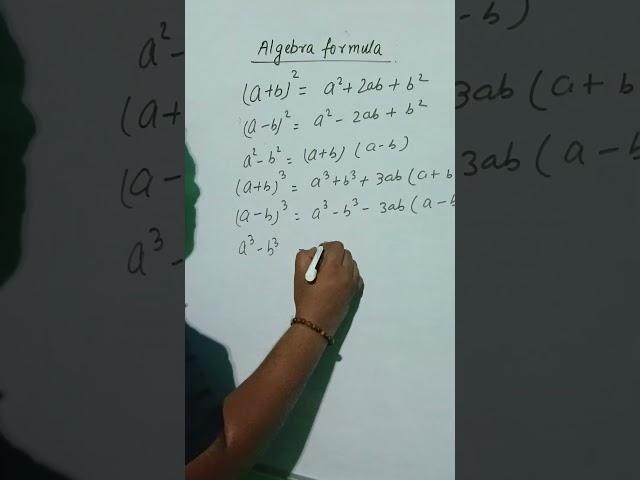 Algebra formula
(a+b)² = a² + 2ab + b²
(a-b)² = a² - 2ab + b²
a² - b² = (a+b) (a-b)
(a+b)³ = a³ + b³ + 3ab (a+b
(a-b)³ = a³ - b³ - 3ab (a-b
a³ - b³